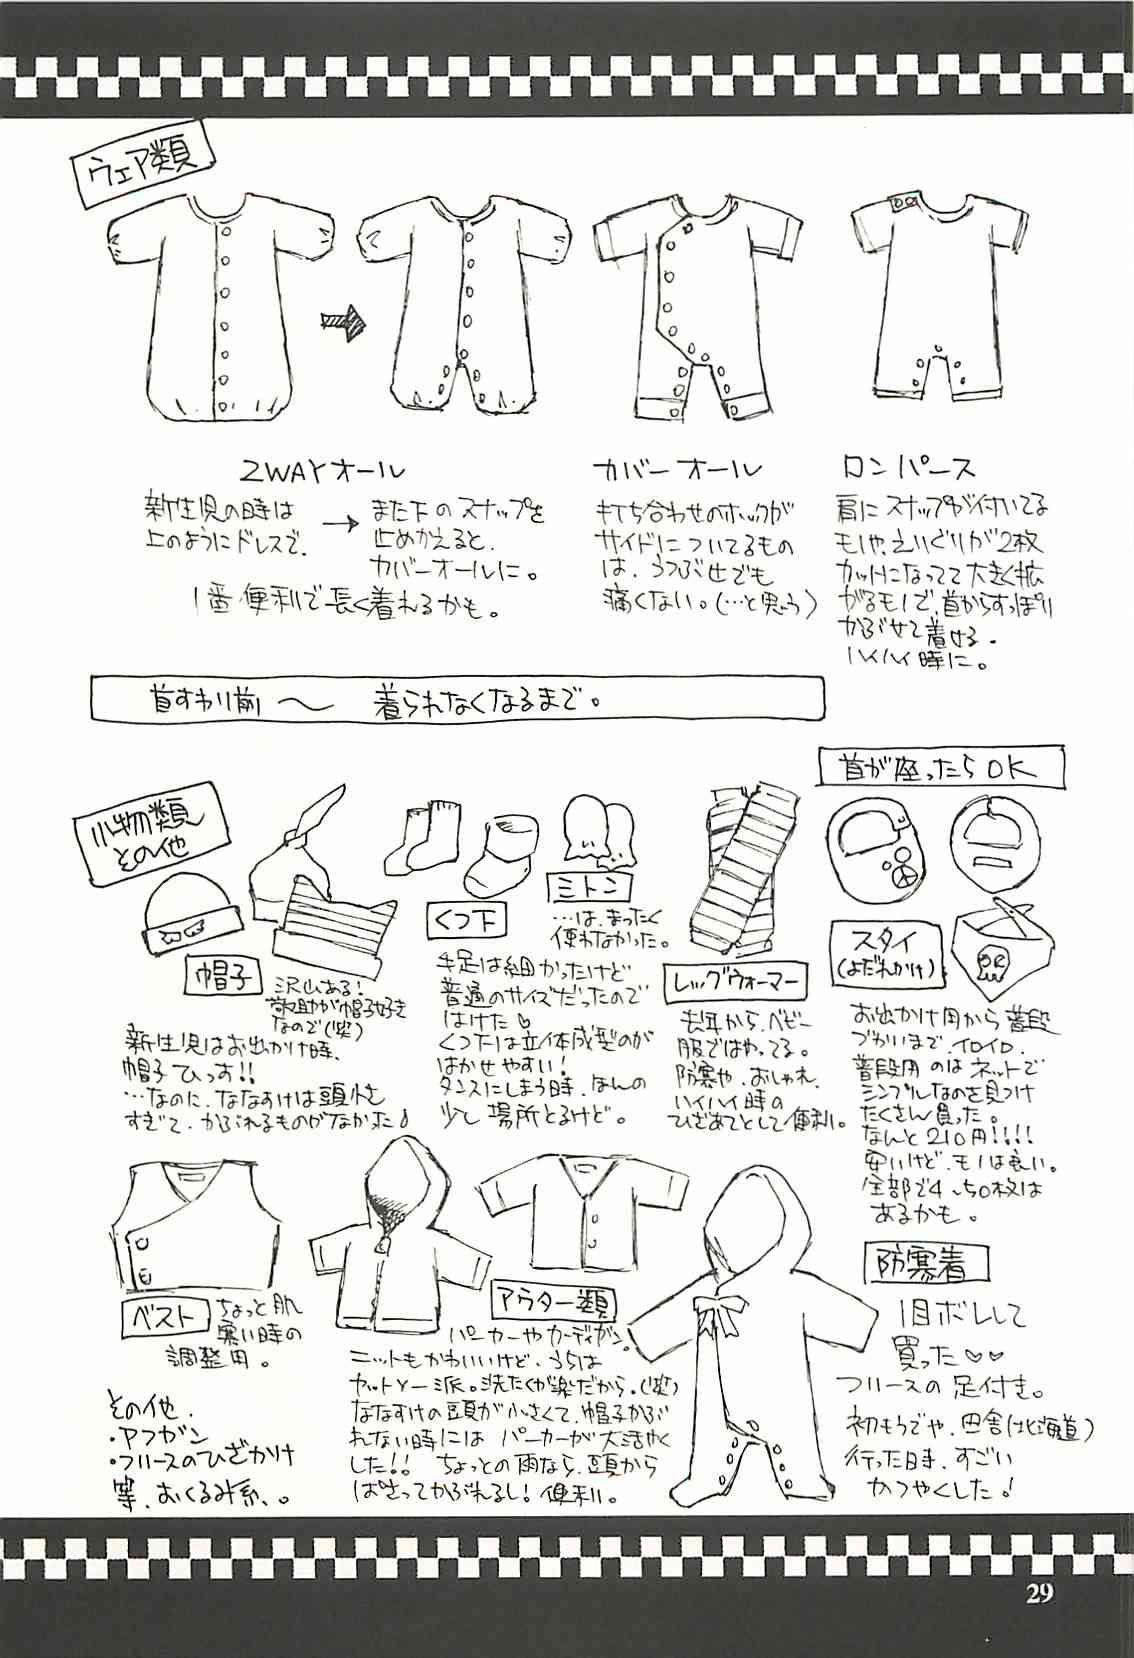 ウェア類
2WAYオール
新生児の時は
上のようにドレスで、
→
また下のスナップを
止めかえると、
カバーオールに。
1番便利で長く着れるかも。
カバーオール
打ち合わせのホックが
サイドについてるもの
は、うつぶせでも
痛くない。(…と思う)
ロンパース
肩にスナップが付いてる
モノや、えいぐりが2枚
カットになってて大きく拡
がるモノで、首からすっぽり
かぶせて着せる。
ハイハイ時に。
首すわり前 〜 着られなくなるまで。
首が座ったらOK
小物類
その他
帽子
沢山ある!
が帽子好き
なので(笑)
新生児はお出かけ時、
帽子ひっす!!
…なのに、ななすけは頭小さ
すぎて、かぶれるものがなかった♪
くつ下
手足は細かったけど
普通のサイズだったので
はけた♡
くつ下は立体成型のが
はかせやすい!
タンスにしまう時、ほんの
少し場所とるけど。
ミトン
…は、まったく
使わなかった。
レッグウォーマー
去年から、ベビー
服ではやってる。
防寒や、おしゃれ、
ハイハイ時の
ひざあてとして便利。
スタイ
(よだれかけ)
お出かけ用から普段
づかいまで、イロイロ、
普段用のはネットで
シンプルなのを見つけ
たくさん買った。
なんと210円!!!!
安いけど、モノは良い。
全部で4、50枚は
あるかも。
ベスト
ちょっと肌
寒い時の
調整用。
アウター類
パーカーやカーディガン。
ニットもかわいいけど、うちは
カットソー派。洗たくが楽だから。(笑)
ななすけの頭が小さくて、帽子かぶ
れない時にはパーカーが大活やく
した!! ちょっとの雨なら、頭から
ばさってかぶれるし!便利。
防寒着
1目ボレして
買った♡♡
フリースの足付き。
初もうでや、田舎(北海道)
行った時、すごい
かつやくした!
その他、
・アフガン
・フリースのひざかけ
等、おくるみ系、。
29